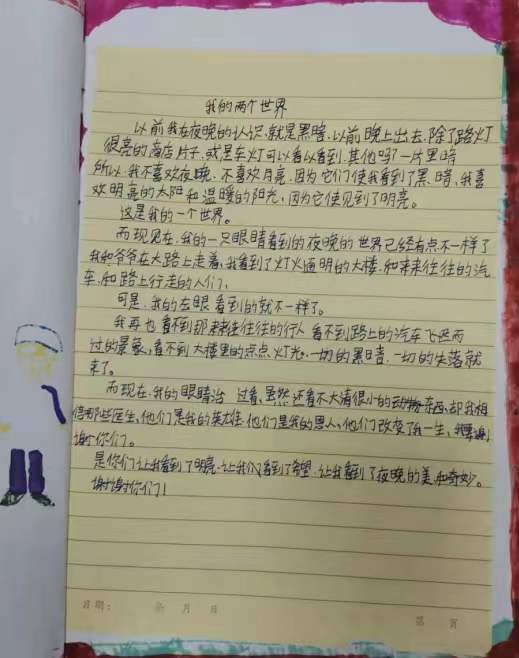 我的两个世界
以前我在夜晚的认识，就是黑暗，以前晚上出去，除了路灯
很亮的商店片子，或是车灯可以看以看到，其他吗？一片黑暗
所以，我不喜欢夜晚，不喜欢月亮，因为它们使我看到了黑暗，我喜
欢明亮的太阳和温暖的阳光，因为它使见到了明亮。
这是我的一个世界。
而现见在，我的一只眼睛看到的夜晚的世界已经有点不一样了
我和爷爷在大路上走着，我看到了灯火通明的大楼，和来来往往的汽
车，和路上行走的人们，
可是，我的左眼看到的就不一样了。
我再也看不到那来来往往的行人，看不到路上的汽车飞迟而
过的景象，看不到大楼里的点点灯光，一切的黑暗，一切的失落就
来了。
而现在，我的眼睛治 过着，虽然还看不大清很小的东西，却我相
信那些医生，他们是我的英雄，他们是我的恩人，他们改变了我一生，我要谢
谢你们。
是你们让我看到了明亮，让我们看到了希望，让我看到了夜晚的美和奇妙。
谢谢你们！
日期： 年 月 日 第 页